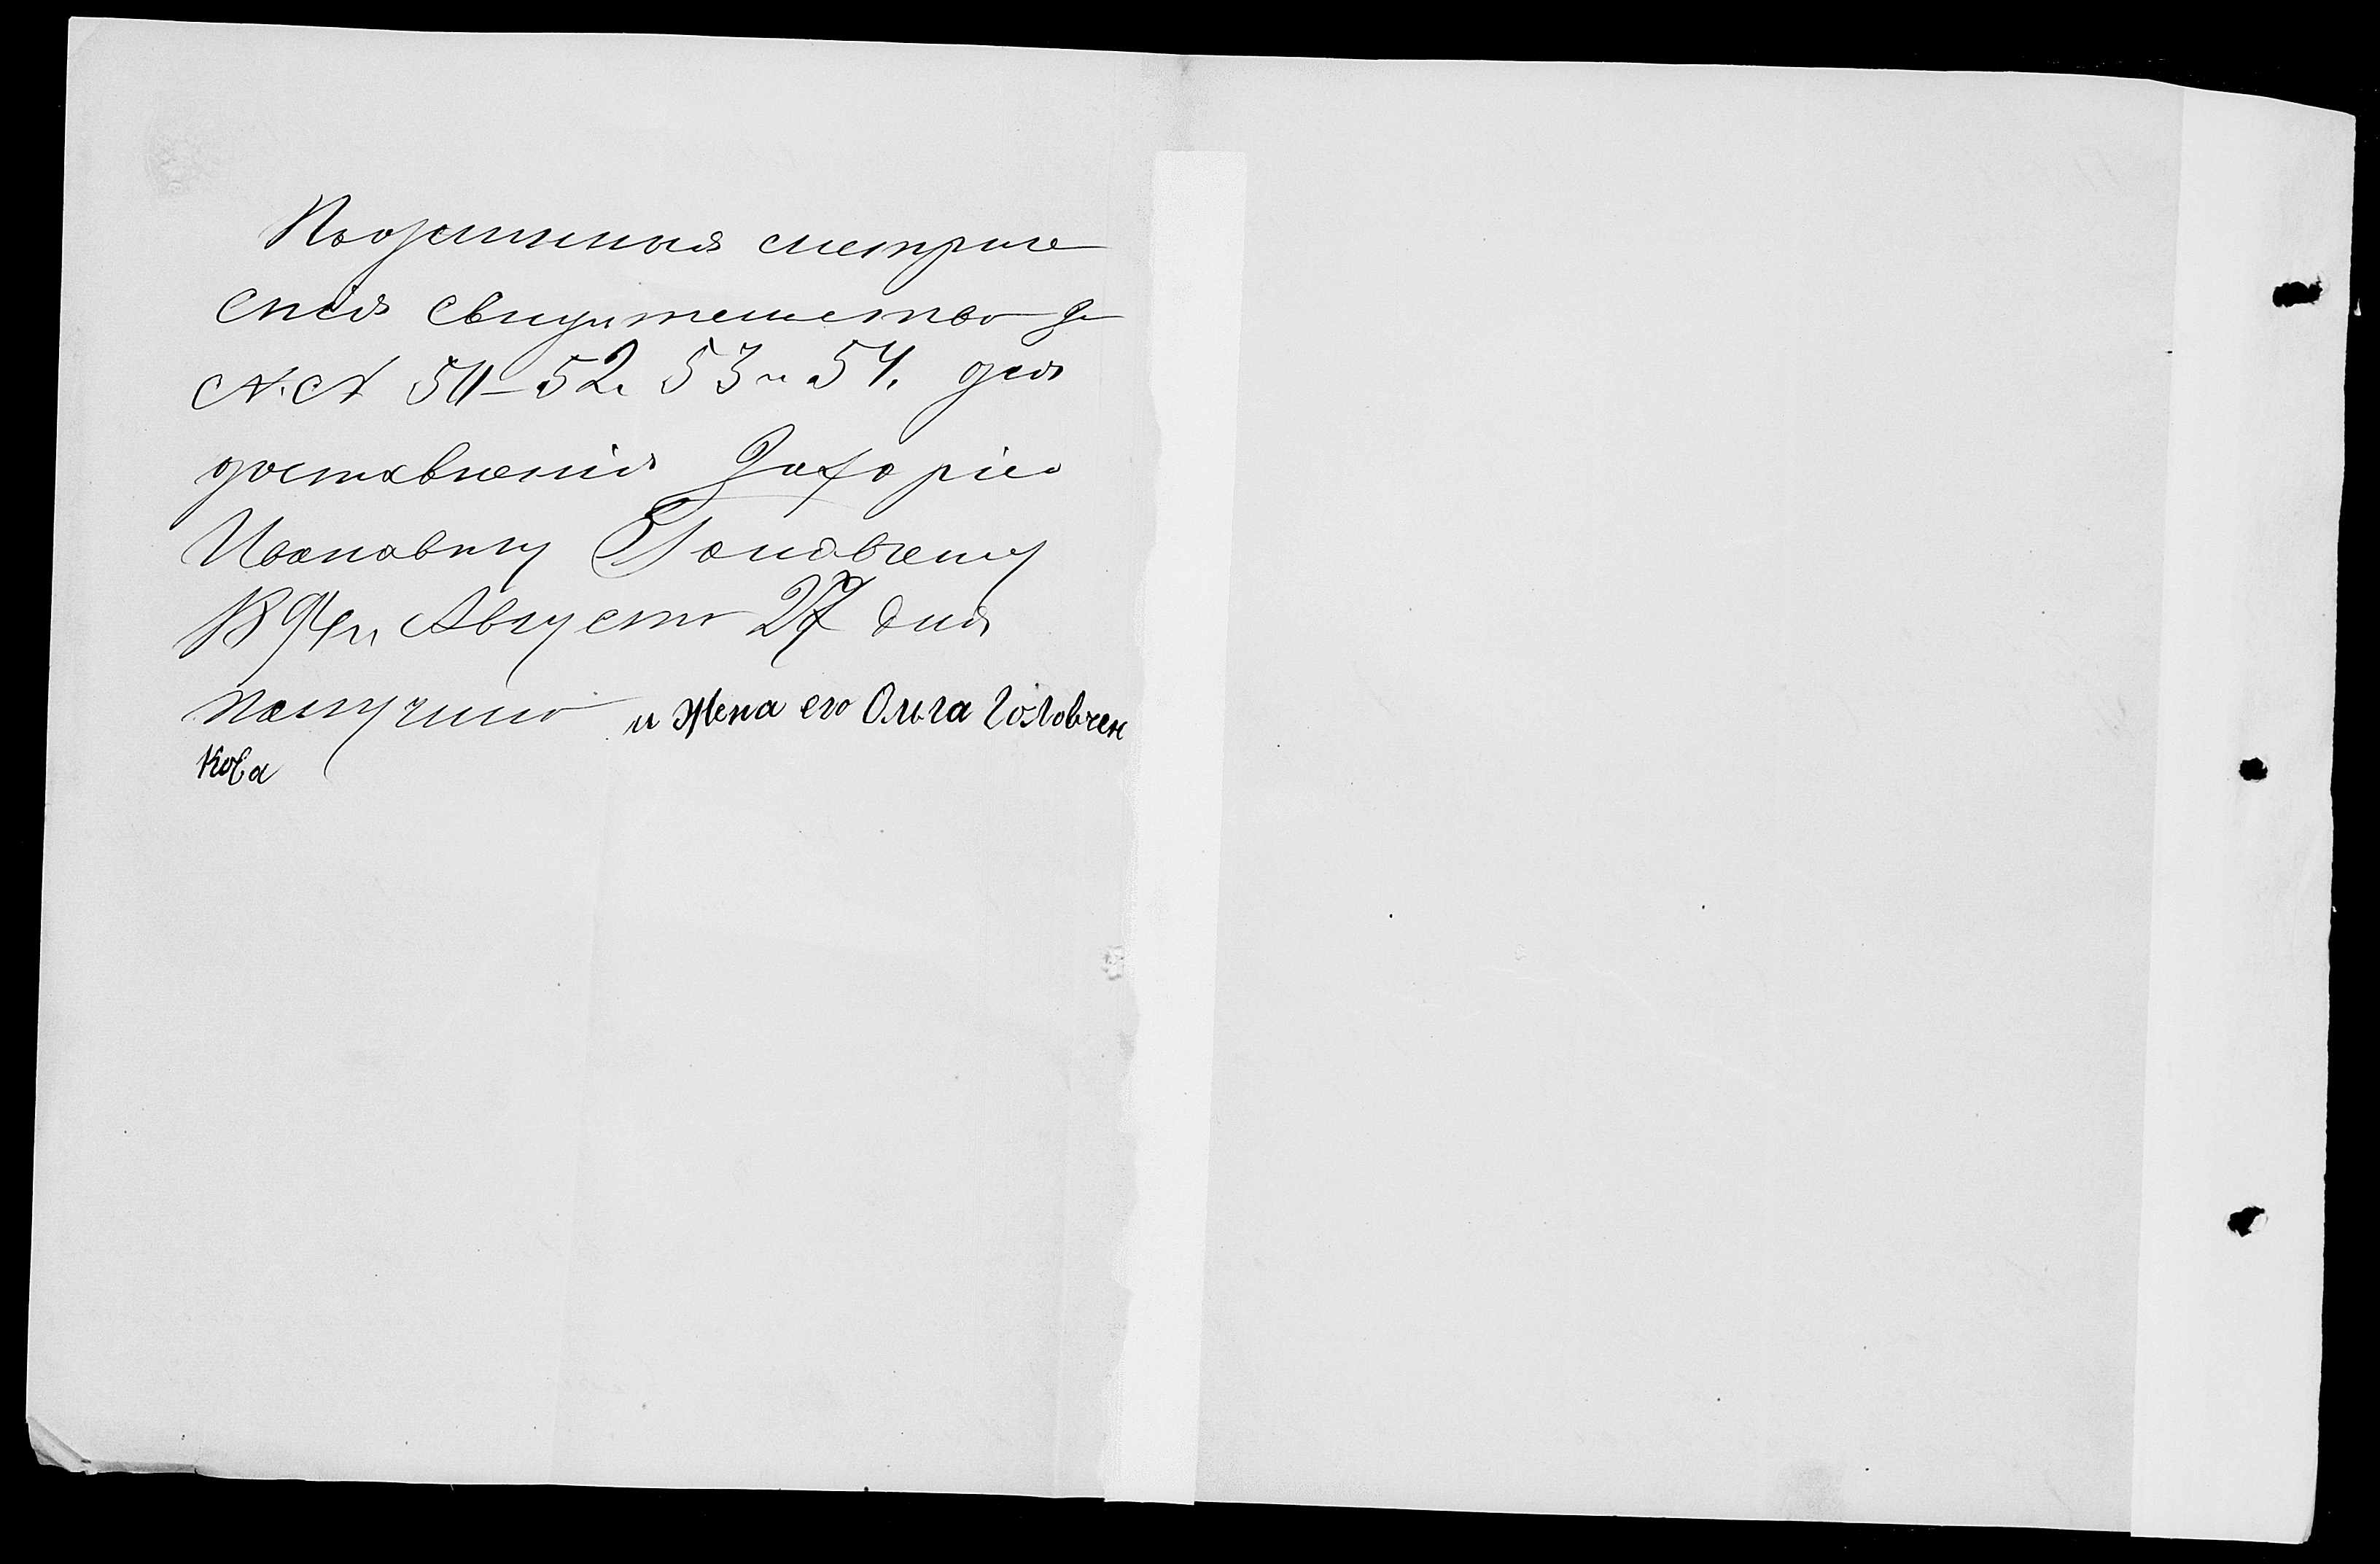 Подлинныя метриче
скія свидетельства за
№№ 51–52. 53 и 54. для
доставленія Захарію
Ивановичу Головчему
189 г. Августа 27 дня
получило и Жена его Ольга Головчен
Кова